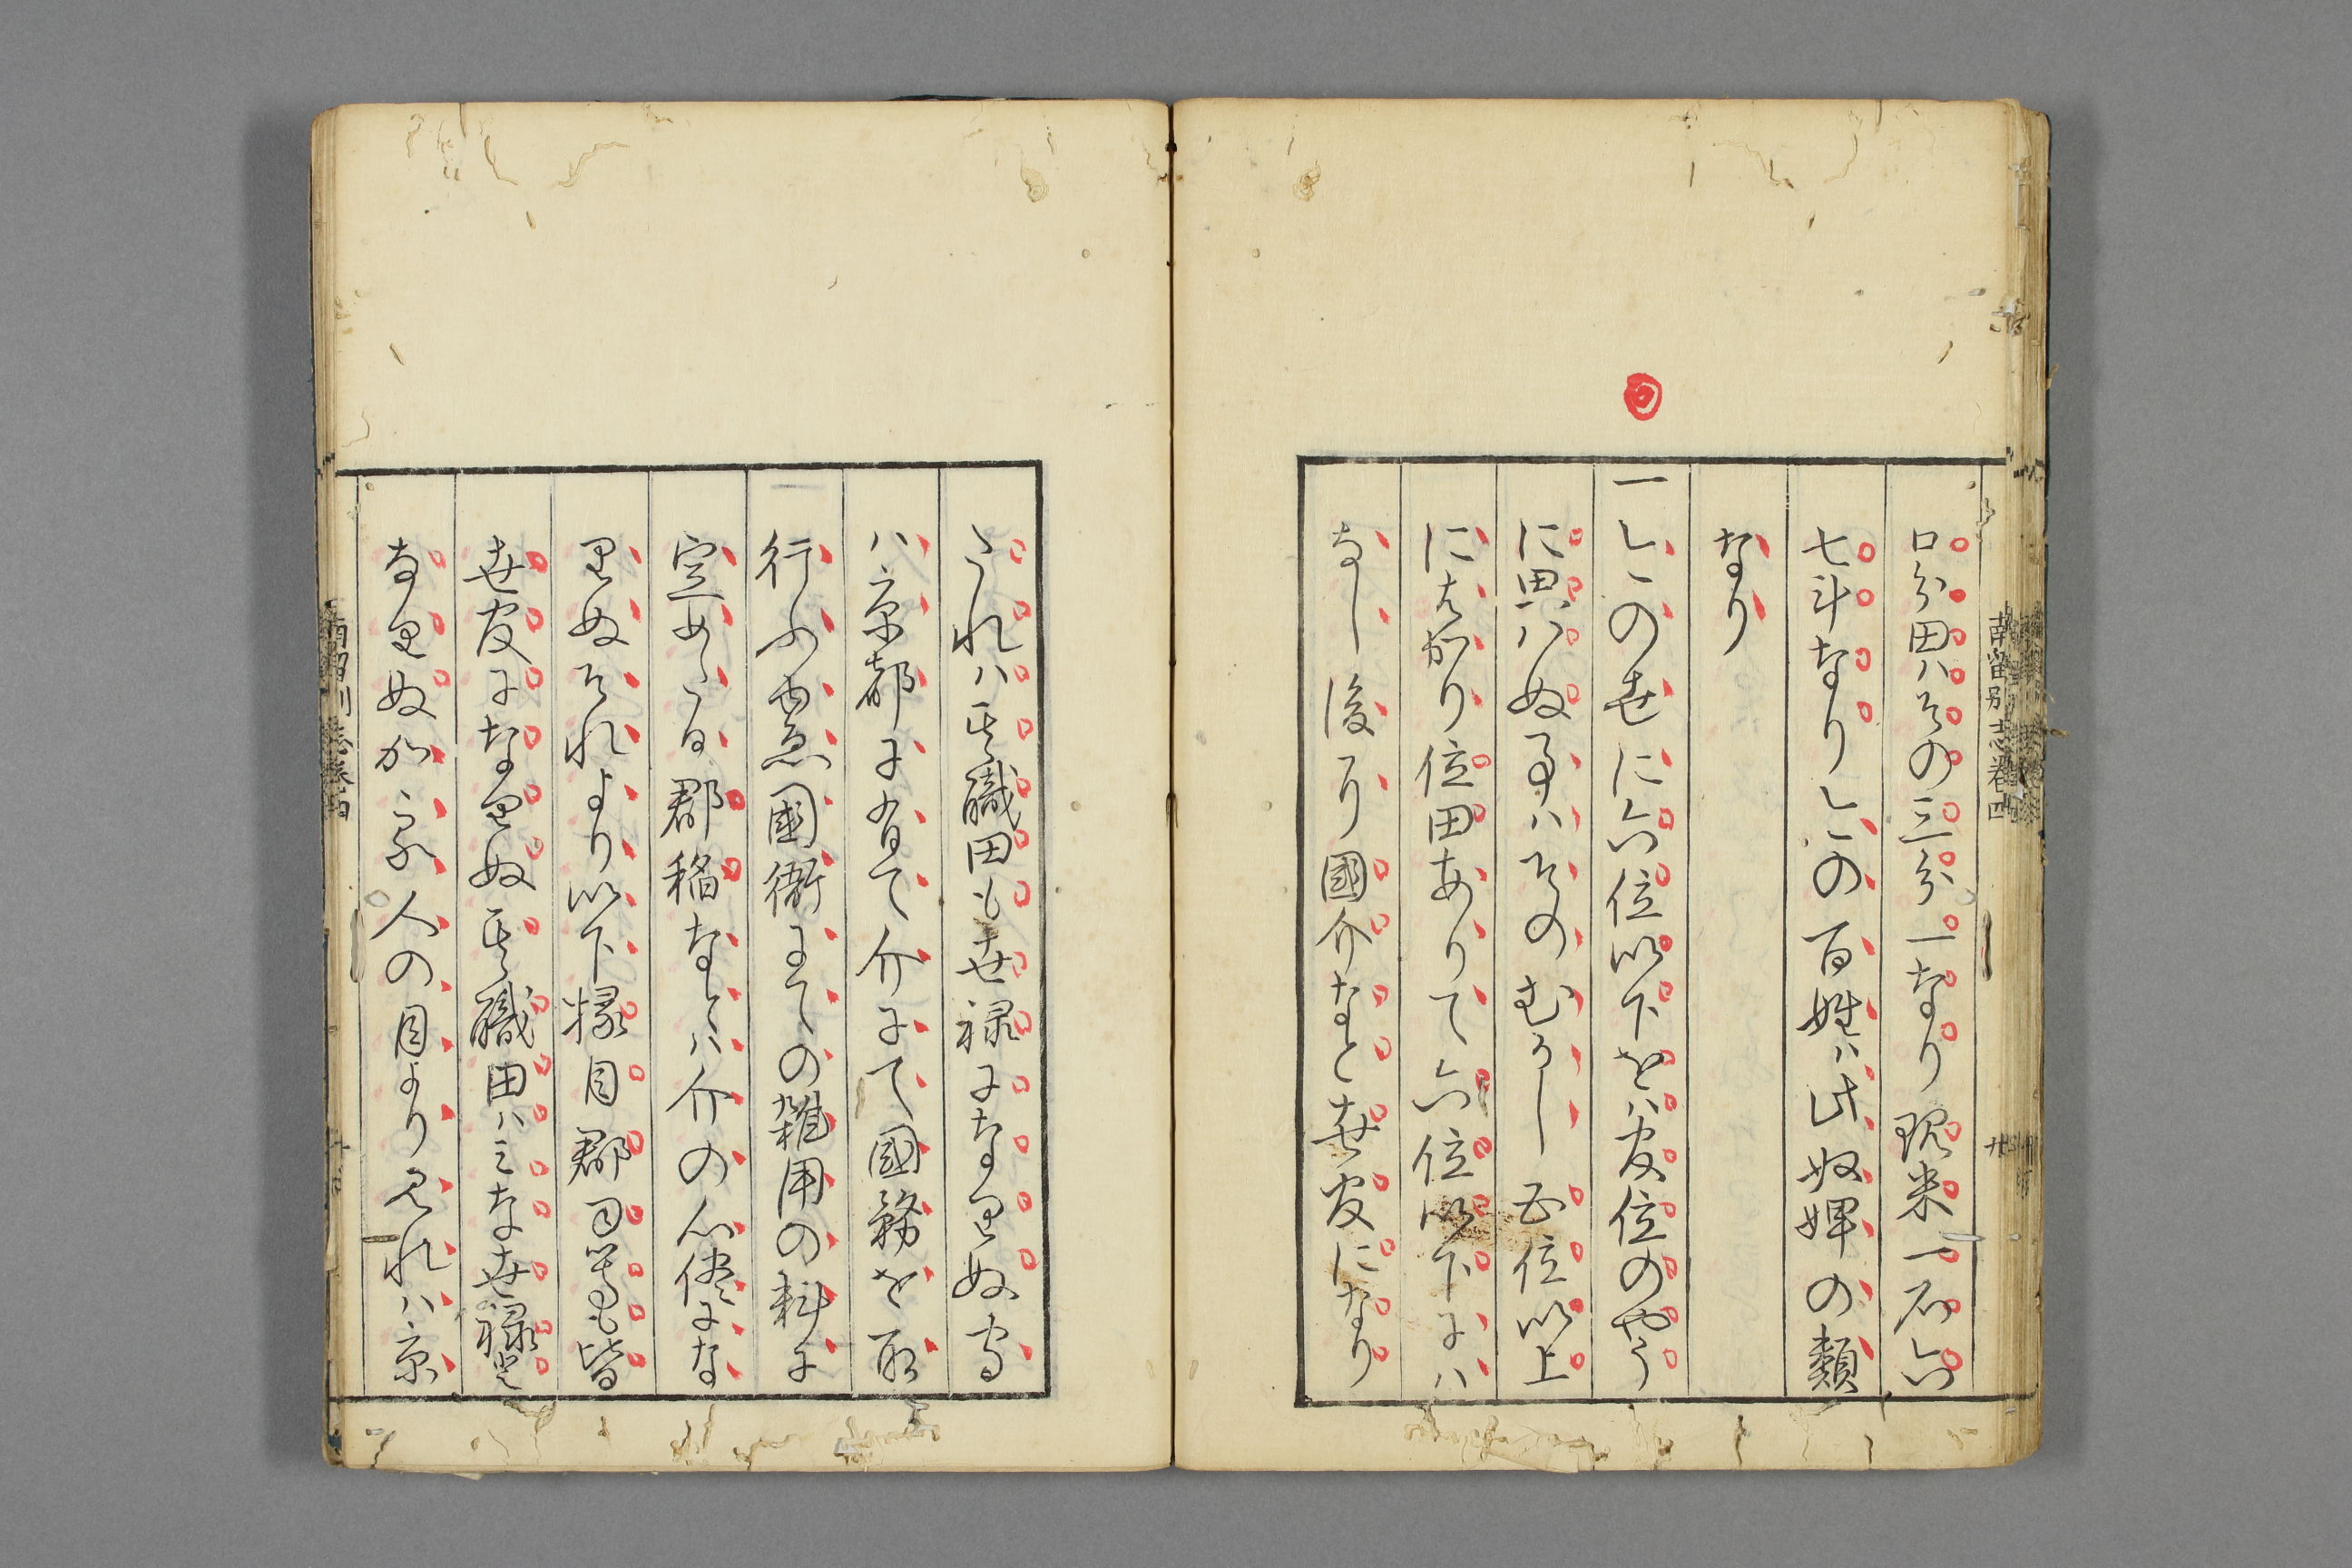 口分田ハその三分一なり現米一石六
七斗なりしこの百姓ハ此奴婢の類
なり
一しこの世に六位以下をハ官位のやう
に思ハぬ事ハそのむかし五位以上
にはかり位田ありて六位以下にハ
なし後に國介なと世官になり
たれハ其職田も世禄になりぬ守
ハ京都に有て介にて國務を取
行ふ
國衙にての雑用の料に
定めたる郡稲なとハ介の心儘にな
りぬそれより以下掾目郡司等も皆
世官になりぬ其職田ハみな世禄と
なりぬかゝる人の目より見れハ京
南留別志巻四